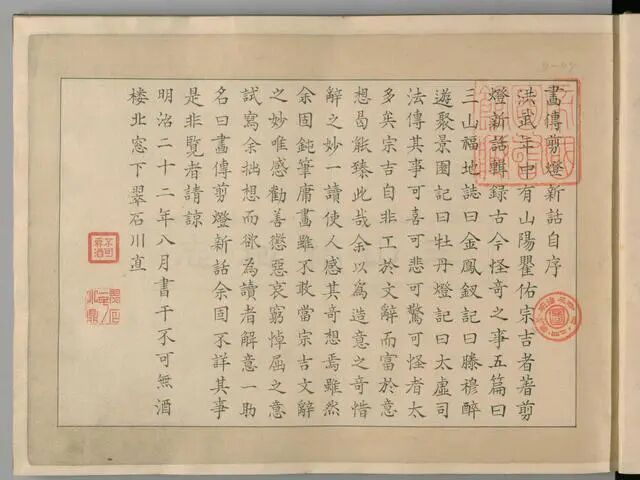 畫傳剪燈新話自序
洪武年中有山陽瞿佑宗吉者著剪
燈新話輯録古今怪奇之事五篇曰
三山福地誌曰金鳳釵記曰滕穆醉
遊聚景園記曰牡丹燈記曰太虛司
法傳其事可喜可悲可驚可怪者太
多矣宗吉自非工於文辭而富於意
想曷能臻此哉余以爲造意之奇惜
辭之妙一讀使人感其奇想焉雖然
余固鈍筆庸畫雖不敢當宗吉文辭
之妙唯感勸善懲惡哀窮悼屈之意
試寫余拙想而欲為讀者解意一助
名曰畫傳剪燈新話余固不詳其事
是非覽者請諒
明治二十二年八月書于不可無酒
楼北窓下翠石川直